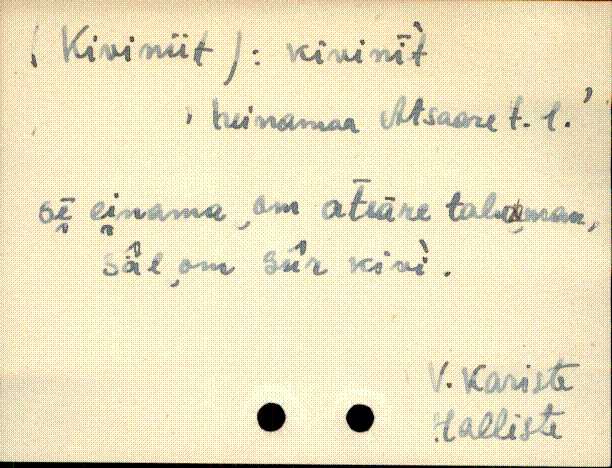 (Kiviniit): kivinī̀t
' heinamaa Atsaare t. l.'
sē̬ e̬inama ͜om atsāre talu͜man,
sâ̬l ͜om sûr kivì.
V. Kariste
Halliste